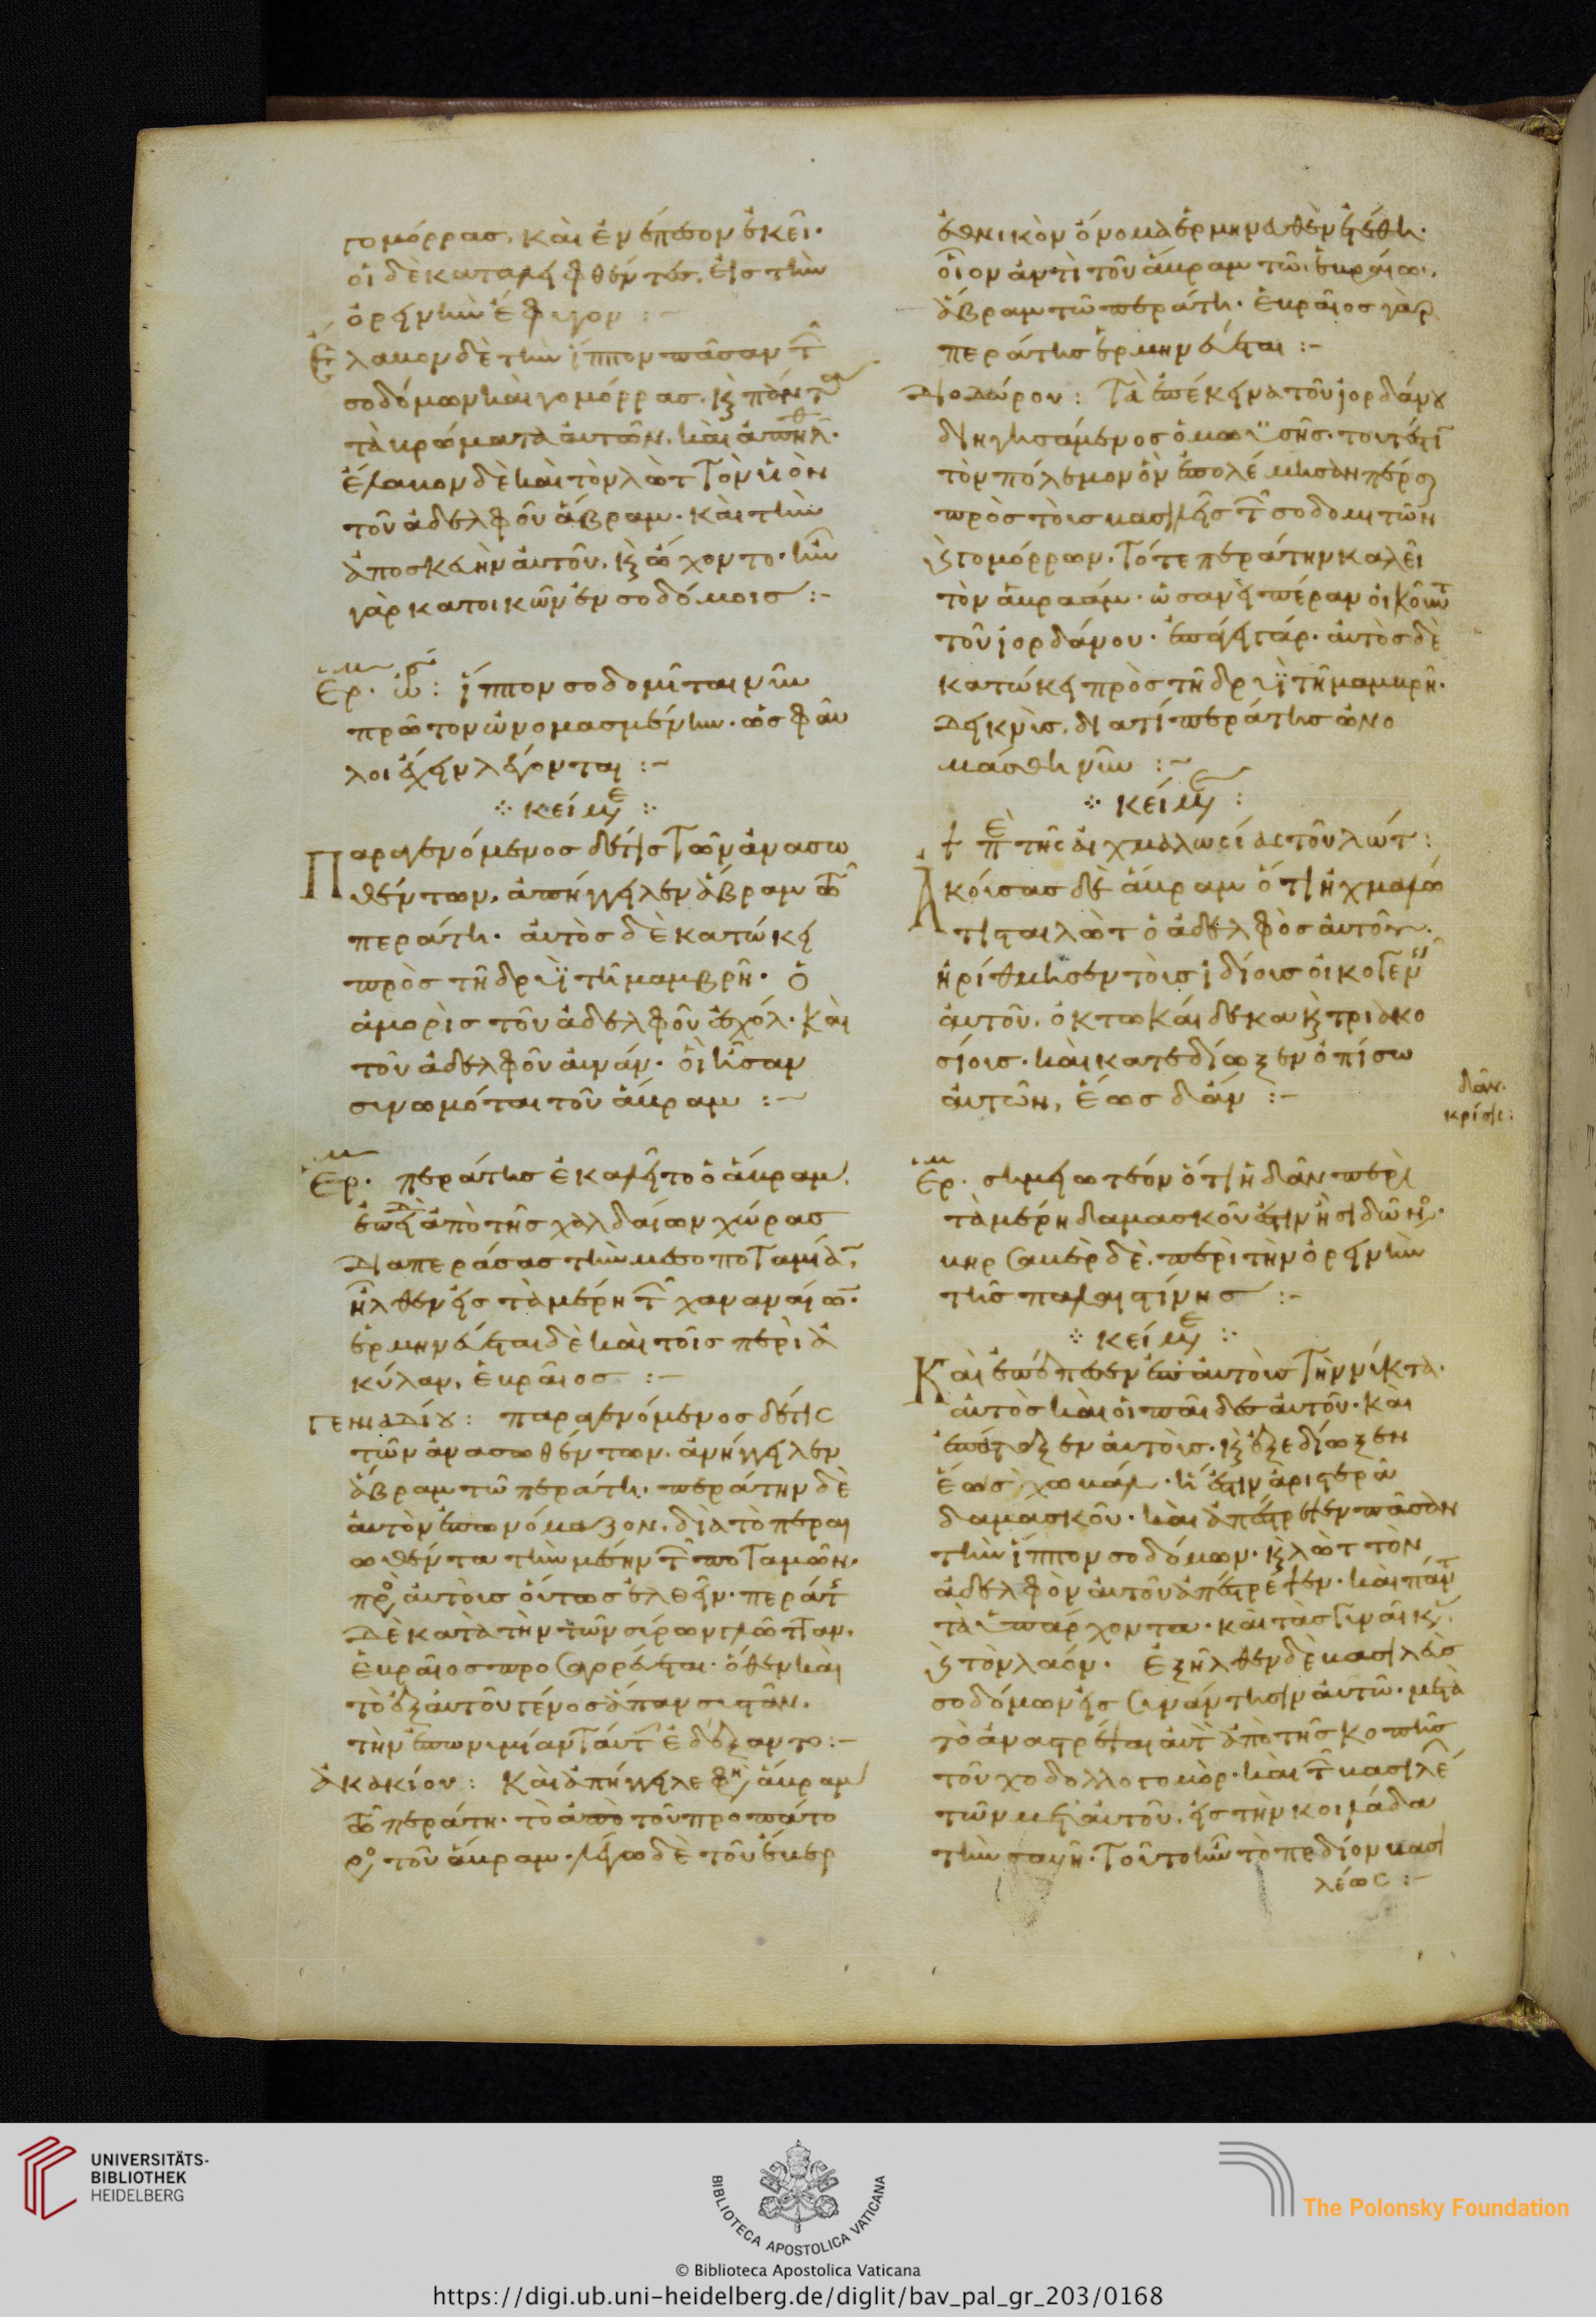 γομόρρας, καὶ ἐνέπεσον ἐκεῖ·
οἱ δὲ καταλειφθέντες, εἰς τὴν
ὀρεινὴν ἔφυγον :-
Ἔλαβον δὲ τὴν ἵππον πᾶσαν τ̑
σοδόμων καὶ γομόρρας. κ̀ πάντα
τὰ βρώματα αὐτῶν. καὶ ἀπῆλθ·
ἔλαβον δὲ καὶ τὸν λὼτ τὸν υἱὸν
τοῦ ἀδελφοῦ ἄβραμ· καὶ τὴν
ἀποσκευὴν αὐτοῦ, κ̀ ὤχοντο· ἦν
γὰρ κατοικῶν ἐν σοδόμοις :-
Ερμ. ὠρ: ἵππον σοδομῖται νῦν
πρῶτον ὠνομασμένην. ὡς φαῦ
λοι ἔχειν λέγονται :-
κείμε
Παραγενόμενος δέ τις τῶν ἀνασω
θέντων, ἀπήγγειλεν ἄβραμ τῶ
περάτη· αὐτὸς δὲ κατώκει
πρὸς τῆ δρυῒ τῆ μαμβρῆ· ὁ
ἀμορὶς τοῦ ἀδελφοῦ ἐσχόλ· καὶ
τοῦ ἀδελφοῦ αὐνάν· οἳ ἦσαν
συνωμόται τοῦ ἄβραμ :-
Ερμ. περάτης ἐκαλεῖτο ὁ ἄβραμ,
ἐπειδὴ ἀπὸ τῆς χαλδαίων χώρας
διαπεράσας τὴν μεσοποταμίαν,
ἦλθεν εἰς τὰ μέρη τ̑ χαναναίων·
ἑρμηνεύεται δὲ καὶ τοῖς περὶ ἀ
κύλαν, ἑβραῖος :-
γενναδίου: παραγενόμενος δέ τις
τῶν ἀνασωθέντων. ἀπήγγειλεν
ἄβραμ τῶ περάτη. περάτην δὲ
αὐτὸν ἐπωνόμαζον, διὰ τὸ περαι
ωθέντα τὴν μέσην τ̑ ποταμῶν.
πρὸς αὐτοὺς οὕτως ἐλθεῖν. περάτης
δὲ κατὰ τὴν τῶν σύρων γλῶτταν,
ἑβραῖος προσαγορεύεται· ὅθεν καὶ
τὸ ἐξ αὐτοῦ γένος ἅπαν σχεδὸν.
τὴν ἐπωνυμίαν ταύτην ἐδέξαντο :-
ἀκακίου: Καὶ ἀπήγγειλε φη ἄβραμ
τῶ περάτη. τὸ ἀπὸ τοῦ προπάτο
ρος τοῦ ἄβραμ. λέγω δὲ τοῦ ἔβερ
ἐθνικὸν ὄνομα ἑρμηνευθὲν ἐτέθη·
οἷον ἀντὶ τοῦ ἄβραμ τῶ ἑβραίω,
ἄβραμ τῶ περάτη. ἑβραῖος γὰρ
περάτης ἑρμηνεύεται :-
Διοδώρου: Τὰ ἐπέκεινα τοῦ ἰορδάνου
διηγησάμενος ὁ μωϋσῆς. τουτέστι
τὸν πόλεμον ὃν ἐπολέμησαν πέρσαι
πρὸς τοὺς βασιλεῖς τ̑ σοδομιτῶν
κ̀ γομόρρων. τότε περάτην καλεῖ
τὸν ἀβραάμ. ὡσανεὶ πέραν οἰκοῦντα
τοῦ ἰορδάνου. ἐπάγει γάρ. αὐτὸς δὲ
κατώκει πρὸς τῆ δρυῒ τῆ μαμβρῆ.
δεικνὺς, διατί περάτης ὠνο
μάσθη νῦν :-
κείμε :
π̀ε τῆς αἰχμαλωσίας τοῦ λώτ :
Ἀκούσας δὲ ἄβραμ ὅτι ἠχμαλώ
τισται λὼτ ὁ ἀδελφὸς αὐτοῦ.
ἠρίθμησεν τοὺς ἰδίους οἰκογενεῖς
αὐτοῦ. ὀκτωκαίδεκα κ̀ τριακο
σίους. καὶ κατεδίωξεν ὀπίσω
αὐτῶν, ἕως δάν :-
δᾶν.
κρίσις :
Ερμ. σημειωτέον ὅτι ἡ δᾶν περὶ
τὰ μέρη δαμασκοῦ ἐστὶν ἢ σιδῶνος.
βηρσαβεὲ δὲ. περὶ τὴν ὀρεινὴν
τῆς παλαιστίνης :-
κείμε
Καὶ ἐπέπεσεν ἐπ' αὐτοὺς τὴν νύκτα.
αὐτὸς καὶ οἱ παῖδες αὐτοῦ. καὶ
ἐπάταξεν αὐτοὺς. κ̀ ἐξεδίωξεν
ἕως χωβάλ. ἥ ἐστιν ἀριστερᾶ
δαμασκοῦ. καὶ ἀπέστρεψεν πᾶσαν
τὴν ἵππον σοδόμων. κ̀ λὼτ τὸν
ἀδελφὸν αὐτοῦ ἀπέστρεψεν. καὶ πάντα
τὰ ὑπάρχοντα. καὶ τὰς γυναῖκας.
κ̀ τὸν λαόν. Ἐξῆλθεν δὲ βασιλεὺς
σοδόμων εἰς συνάντησιν αὐτῶ. μετὰ
τὸ ἀναστρέψαι αὐτὸν ἀπὸ τῆς κοπῆς
τοῦ χοδολλογομὸρ. καὶ τ̑ βασιλέ
των μετ' αὐτοῦ. εἰς τὴν κοιλάδα
τὴν σαυῆ. τοῦτο ἦν τὸ πεδίον βασι
λέως :-
UNIVERSITÄTS-
BIBLIOTHEK
HEIDELBERG
BIBLIOTECA APOSTOLICA VATICANA
The Polonsky Foundation
© Biblioteca Apostolica Vaticana
https://digi.ub.uni-heidelberg.de/diglit/bav_pal_gr_203/0168